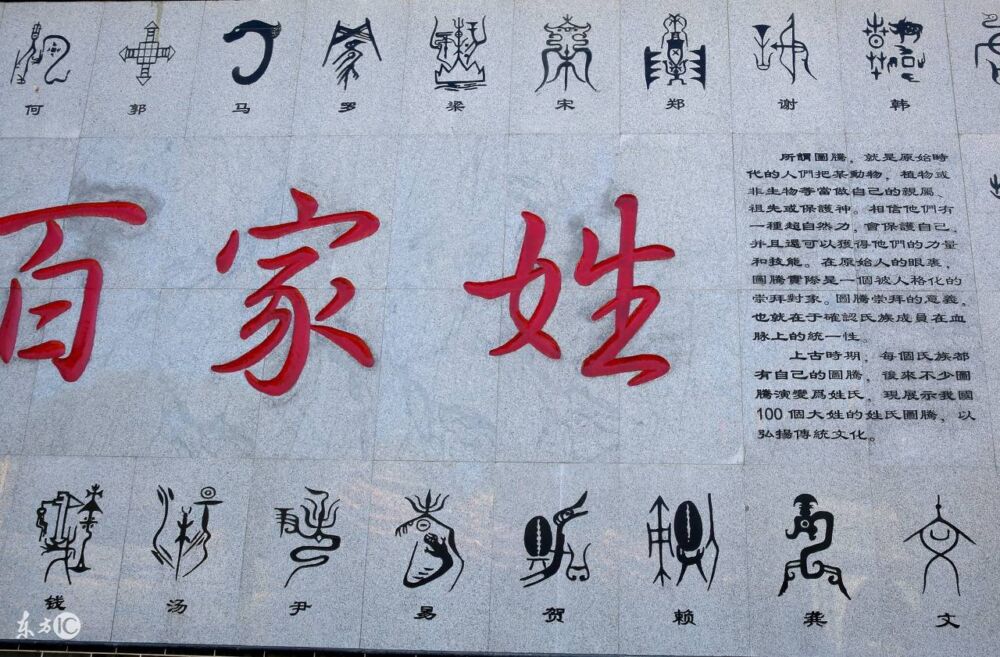 何 郭 马 罗 梁 宋 郑 谢 韩
百家姓
所謂圖騰，就是原始時
代的人們把某動物，植物或
非生物等當做自己的親屬、
祖先或保護神。相信他們有
一種超自然力，會保護自己，
并且還可以獲得他們的力量
和技能。在原始人的眼裏，
圖騰實際是一個被人格化的
崇拜對象。圖騰崇拜的意義，
也就在于確認氏族成員在血
脉上的統一性。
上古時期，每個氏族都
有自己的圖騰，後來不少圖
騰演變爲姓氏，現展示我國
100個大姓的姓氏圖騰，以
弘揚傳統文化。
钱 汤 尹 易 贺 赖 龚 文
东方IC